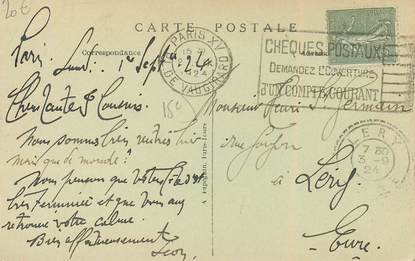 20€
CARTE POSTALE
Correspondance
ADRESSE
PARIS XV
DE VAUGIRARD
CHEQUES POSTAUX
DEMANDEZ L'OUVERTURE
d'UN COMPTE COURANT
Paris,
Lundi, 1er Sept 24
Chers Tante & Cousins.
Nous sommes très
mais que de monde!
Nous pensons que votre
très et que vous avez
retrouvé votre calme.
Bien affectueusement
Leon
150
A. Papeghin, Paris-Tours.
Monsieur Henri St Germain
rue
à Léry
Eure.
LERY
7 30
3 -9
24